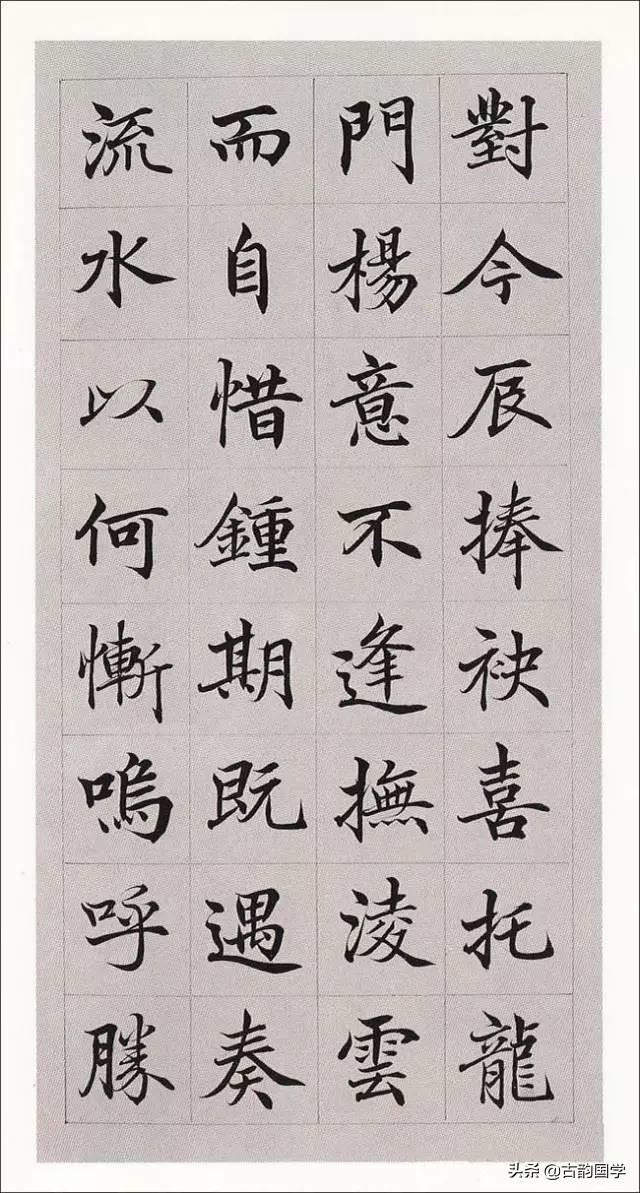 對今辰捧袂喜托龍
門楊意不逢撫淩雲
而自惜鍾期既遇奏
流水以何慚嗚呼勝
头条@古韵国学